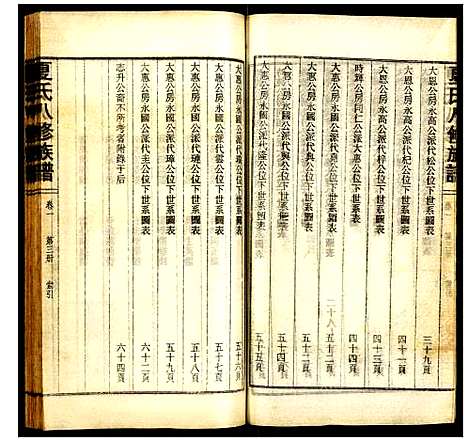 夏氏八修族譜
卷一 第三冊 索引
大惠公房永高公派代松公位下世系圖表 三十九頁
大恩公房永高公派代杞公位下世系圖表 四十一頁
大恩公房永高公派代梓公位下世系圖表 四十三頁
時輝公房同仁公派大惠公位下世系圖表 四十四頁
大惠公房永國公派代 公位下世系圖表 五十二頁
大惠公房永國公派代興公位下世系圖表 五十四頁
大惠公房永國公派代隆公位下世系圖表 五十五頁
大惠公房永國公派代 公位下世系圖表 五十六頁
大惠公房永國公派代雲公位下世系圖表 五十七頁
大惠公房永國公派代璉公位下世系圖表 五十八頁
大惠公房永國公派代璋公位下世系圖表 五十九頁
大惠公房永國公派代圭公位下世系圖表 六十二頁
志升公裔不所考者附錄于后 六十四頁
夏氏八修族譜
卷一 第三冊 索引